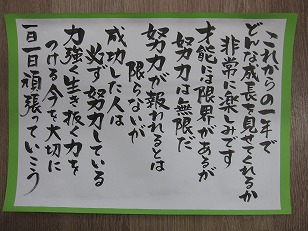 これからの一年で
どんな成長を見せてくれるか
非常に楽しみです
才能には限界があるが
努力は無限だ
努力が報われるとは
限らないが
成功した人は
必ず努力している
力強く生き抜く力を
つける今を大切に
一日一日頑張っていこう